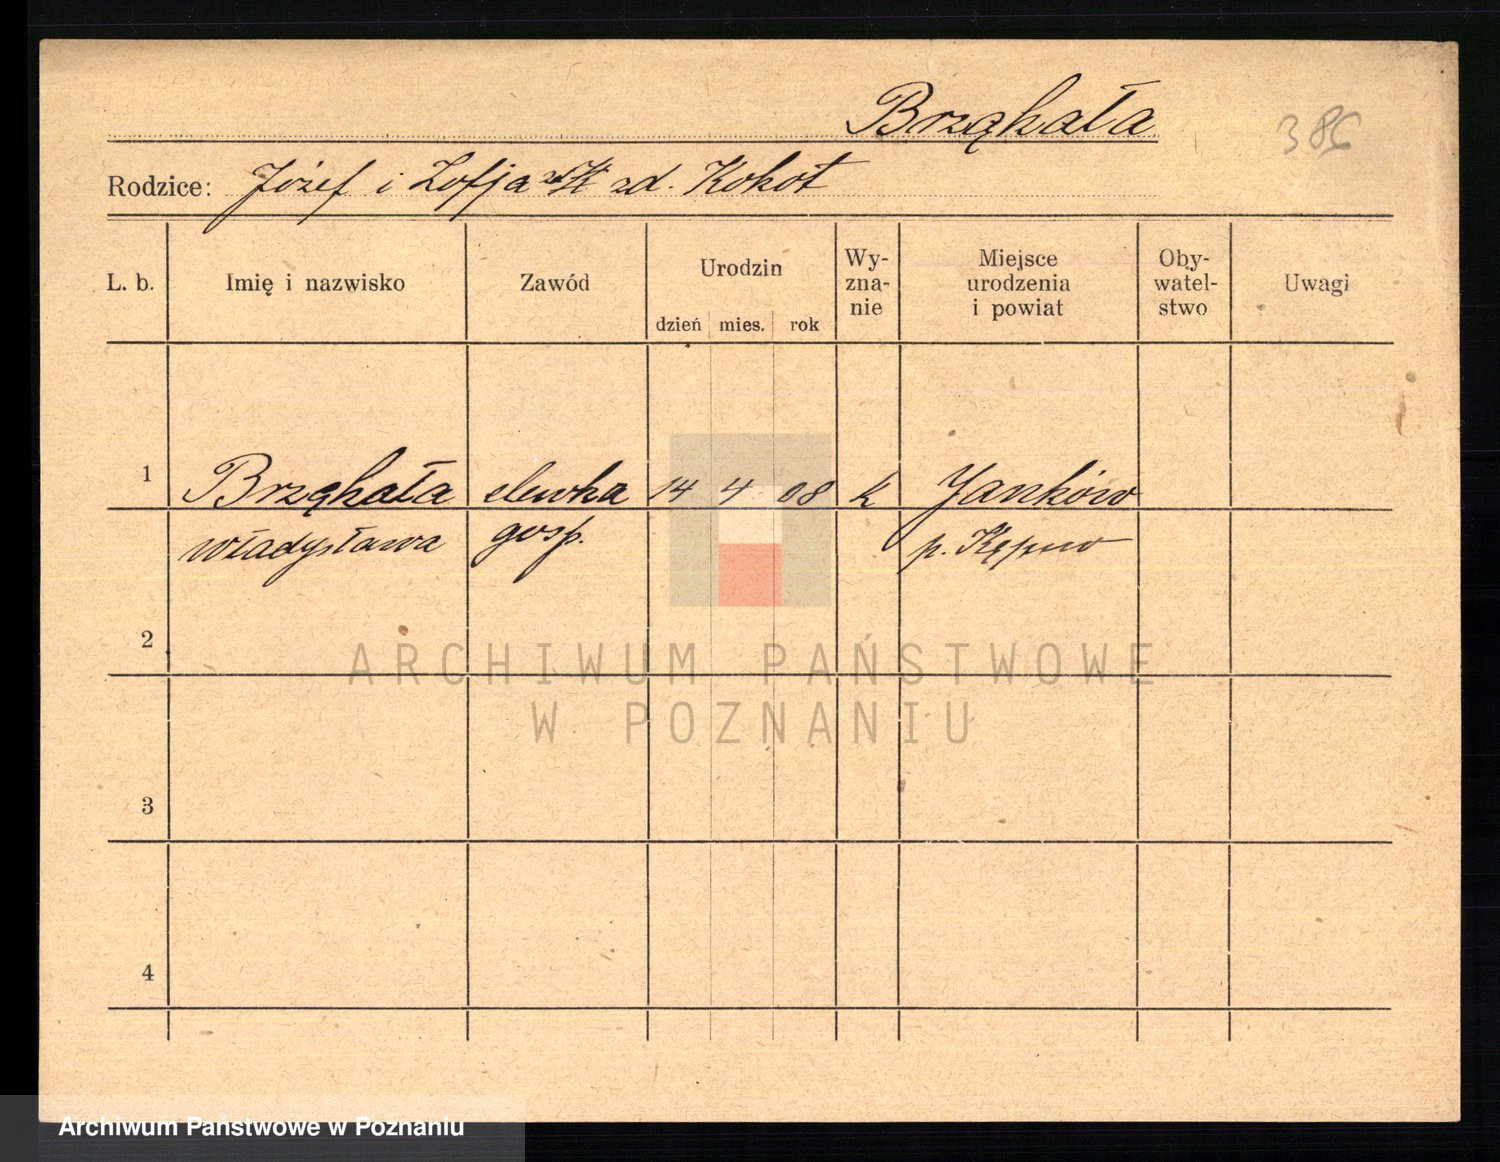 Brząkała
385
Rodzice: Józef i Zofja zd. Kokot
L. b. Imię i nazwisko Zawód Urodzin dzień mies. rok Wy-zna-nie Miejsce urodzenia i powiat Oby-watel-stwo Uwagi
1 Brząkała elewka 14 4 08 k Janków
Władysława gosp. p. Kępno
2
3
4
ARCHIWUM PAŃSTWOWE
W POZNANIU
Archiwum Państwowe w Poznaniu